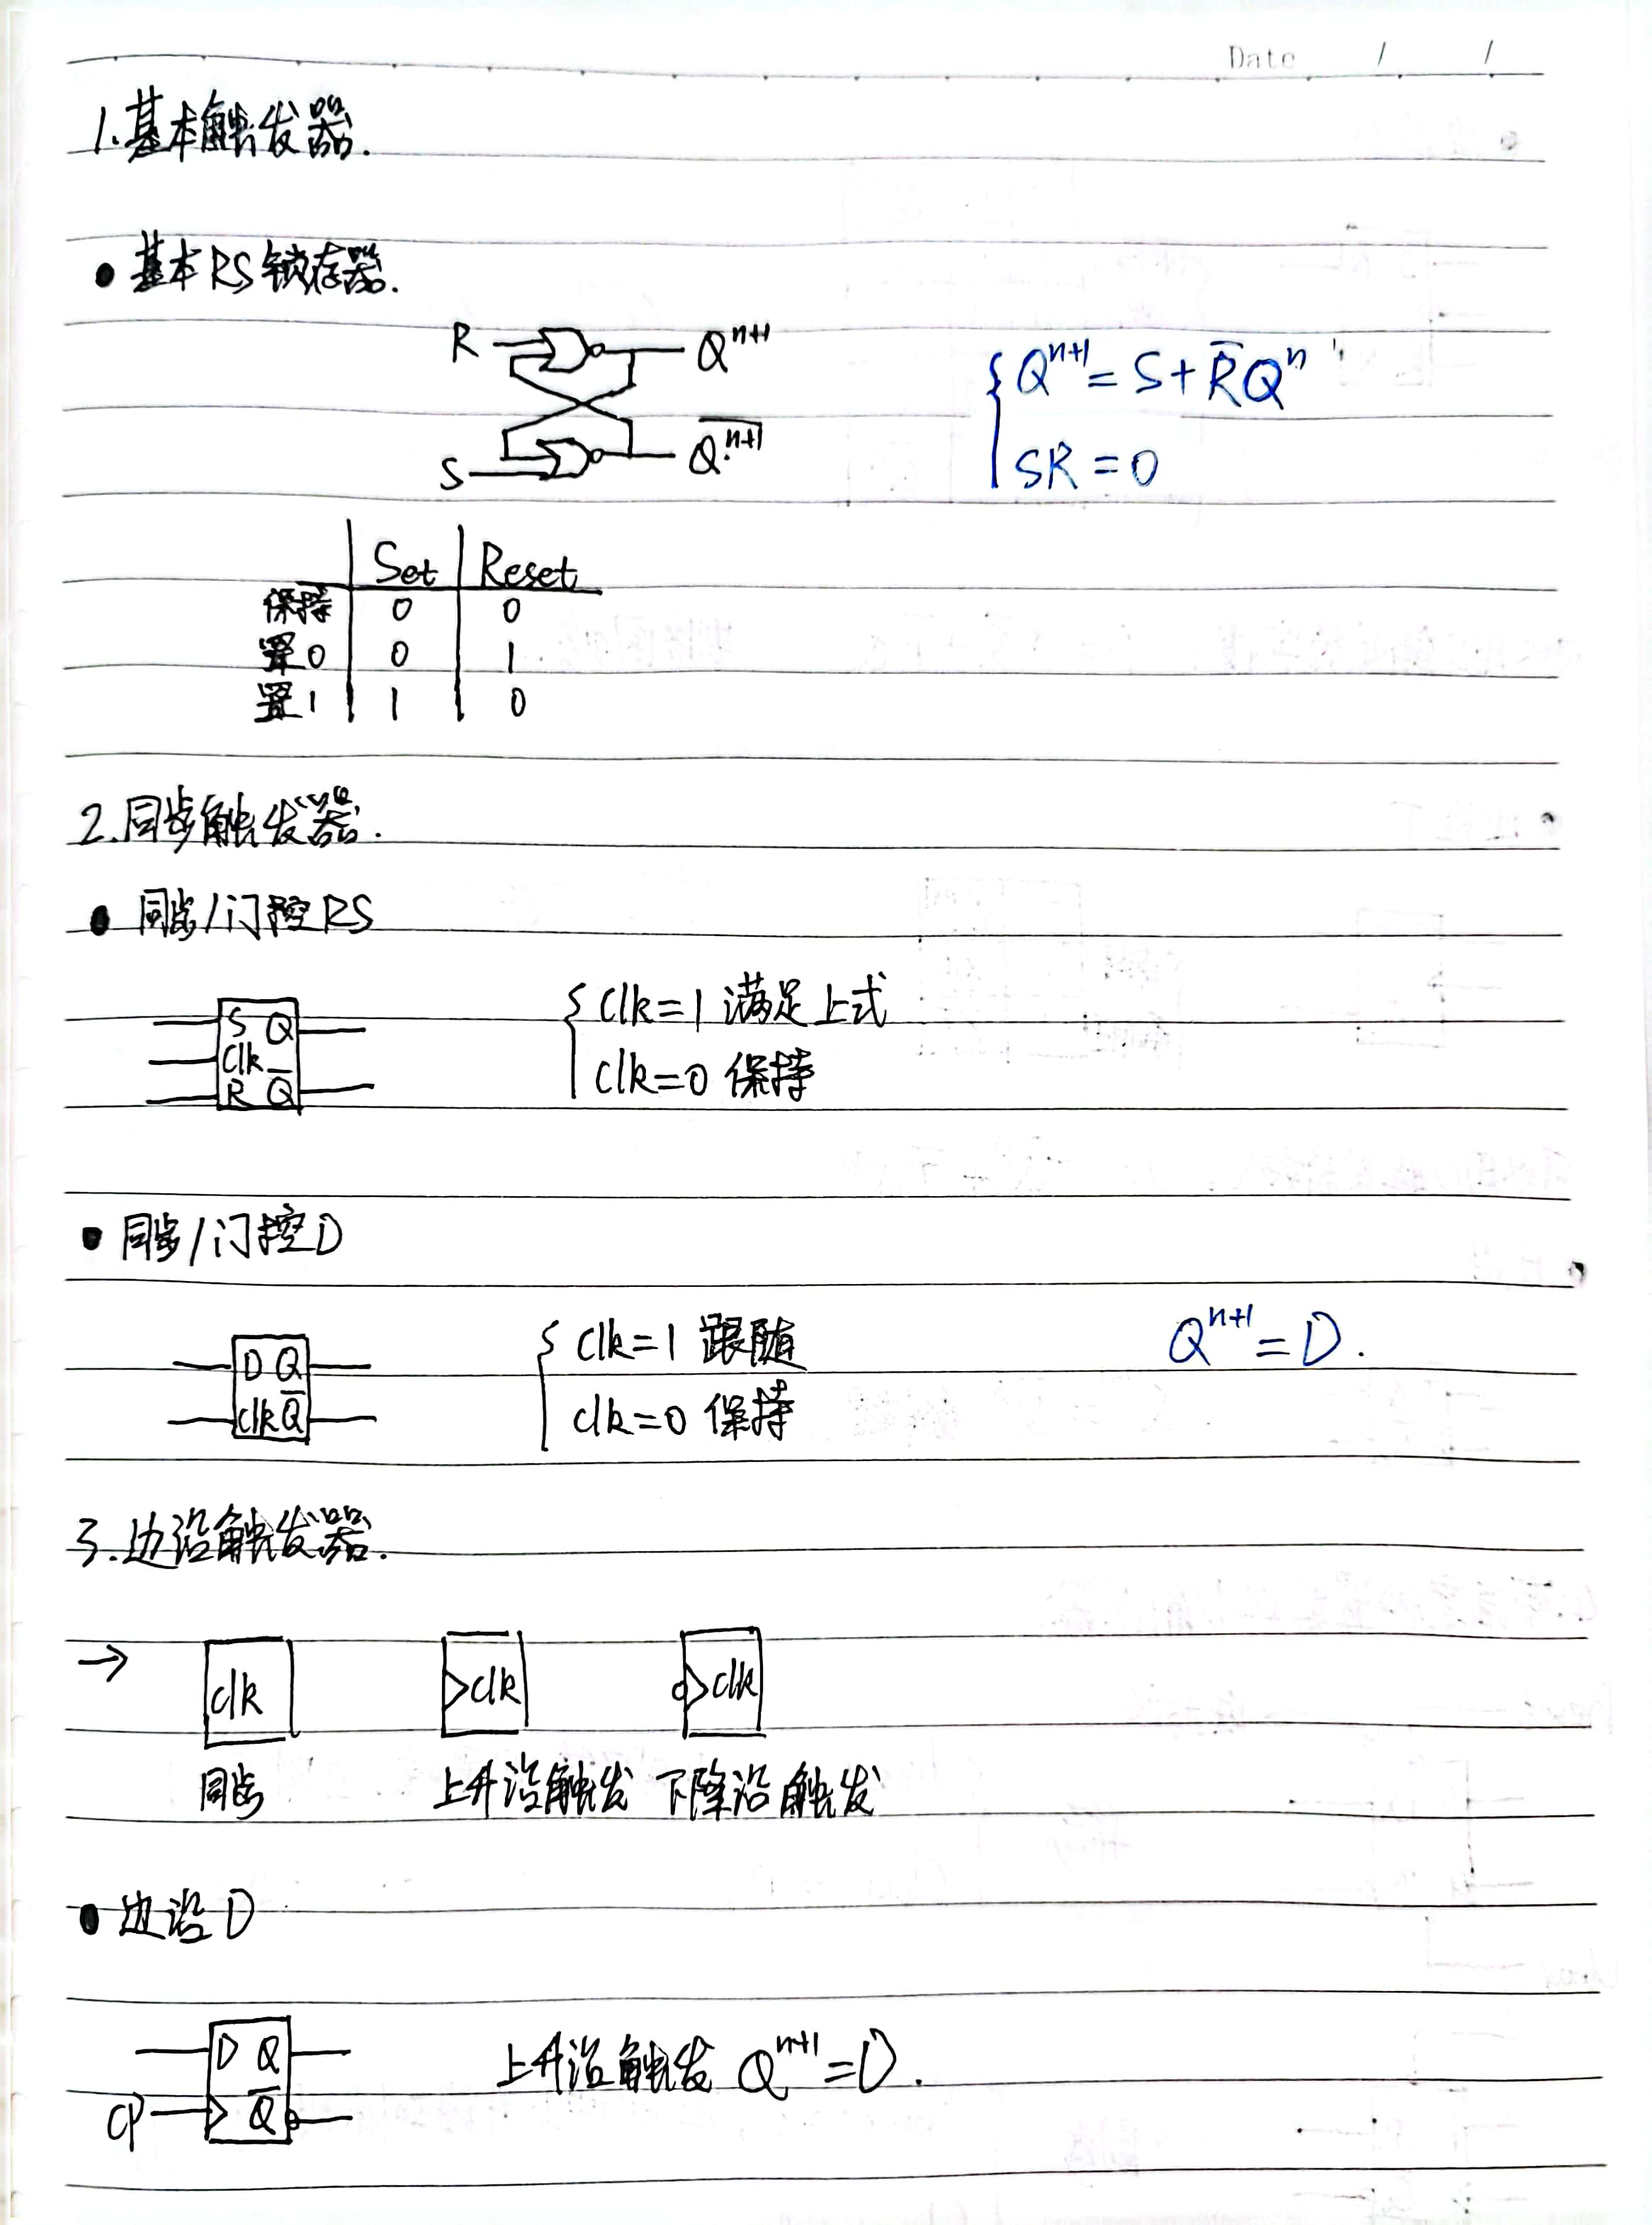 Date / /
1.基本触发器.
• 基本RS锁存器.
R Qⁿ⁺¹
{ Qⁿ⁺¹ = S + R̅Qⁿ
S Q̅ⁿ⁺¹
SR = 0
Set Reset
保持 0 0
置0 0 1
置1 1 0
2.同步触发器.
• 同步/门控RS
S Q
Clk
R Q̅
{ Clk=1 满足上式
Clk=0 保持
• 同步/门控D
D Q
clk Q̅
{ Clk=1 跟随
clk=0 保持
Qⁿ⁺¹ = D.
3.边沿触发器.
→ clk clk clk
同步 上升沿触发 下降沿触发
• 边沿D
D Q
CP Q̅
上升沿触发 Qⁿ⁺¹=D.